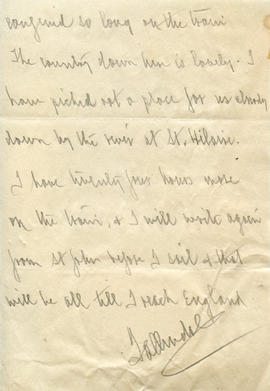 so long on the train
The country down here is lovely. I
have picked out a place for us already
down by the river at St. Hilaire.
I have twenty four hours more
on the train, & I will write again
from St John before I sail & that
will be all till I reach England